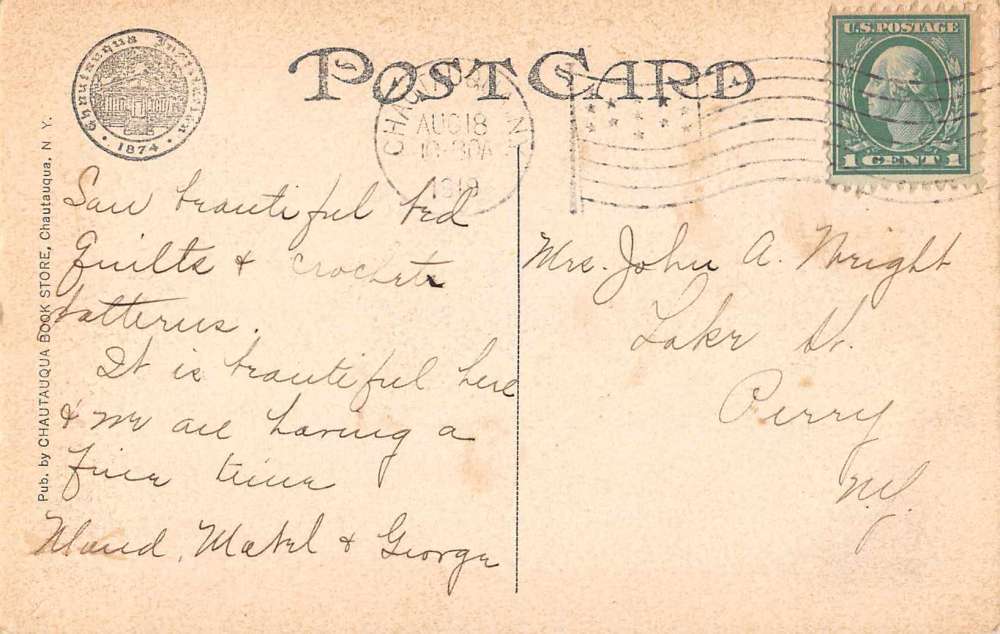 Chautauqua Institution
· 1874 ·
POST CARD
CHAUTAUQUA
N
AUG 18
10-30A
1919
U.S. POSTAGE
1 CENT 1
Pub. by CHAUTAUQUA BOOK STORE, Chautauqua, N. Y.
Saw beautiful bed
quilts & crochete
patterns.
It is beautiful here
& we are having a
fine time
Maud, Mabel & George
Mrs. John A. Wright
Lake St.
Perry
N.Y.